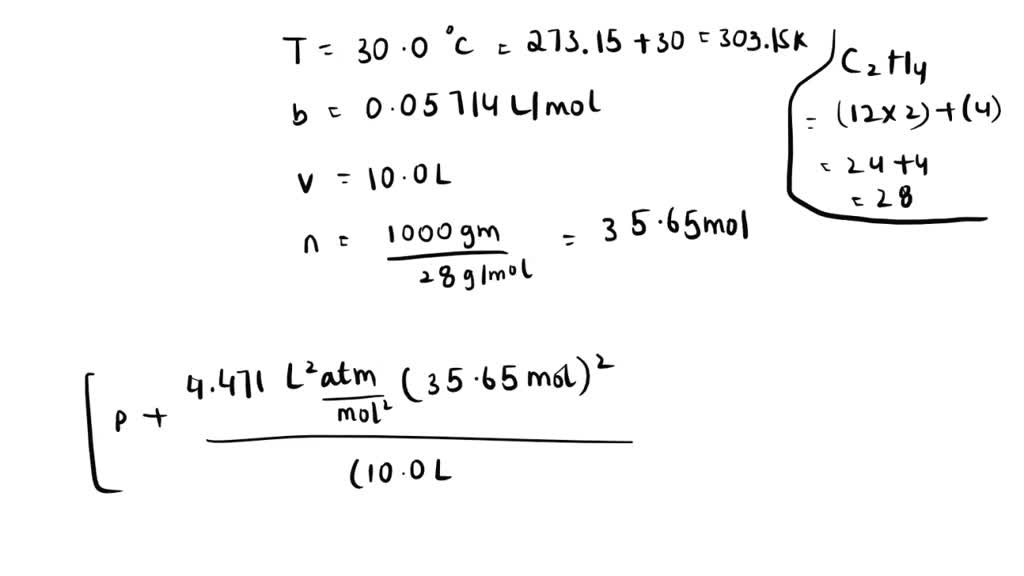 T = 30.0 °C = 273.15 + 30 = 303.15K
b = 0.05714 L/mol
v = 10.0L
n = 1000 gm / 28 g/mol = 35.65 mol
C₂H₄
= (12×2) + (4)
= 24 + 4
= 28
[ P + 4.471 L² atm / mol² (35.65 mol)²
(10.0 L